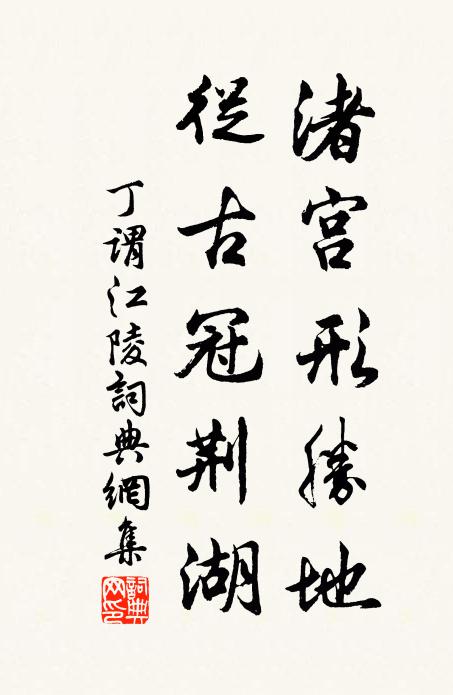 渚宫形勝地
從古冠荆湖
丁謂江陵詞典網集
詞典网印